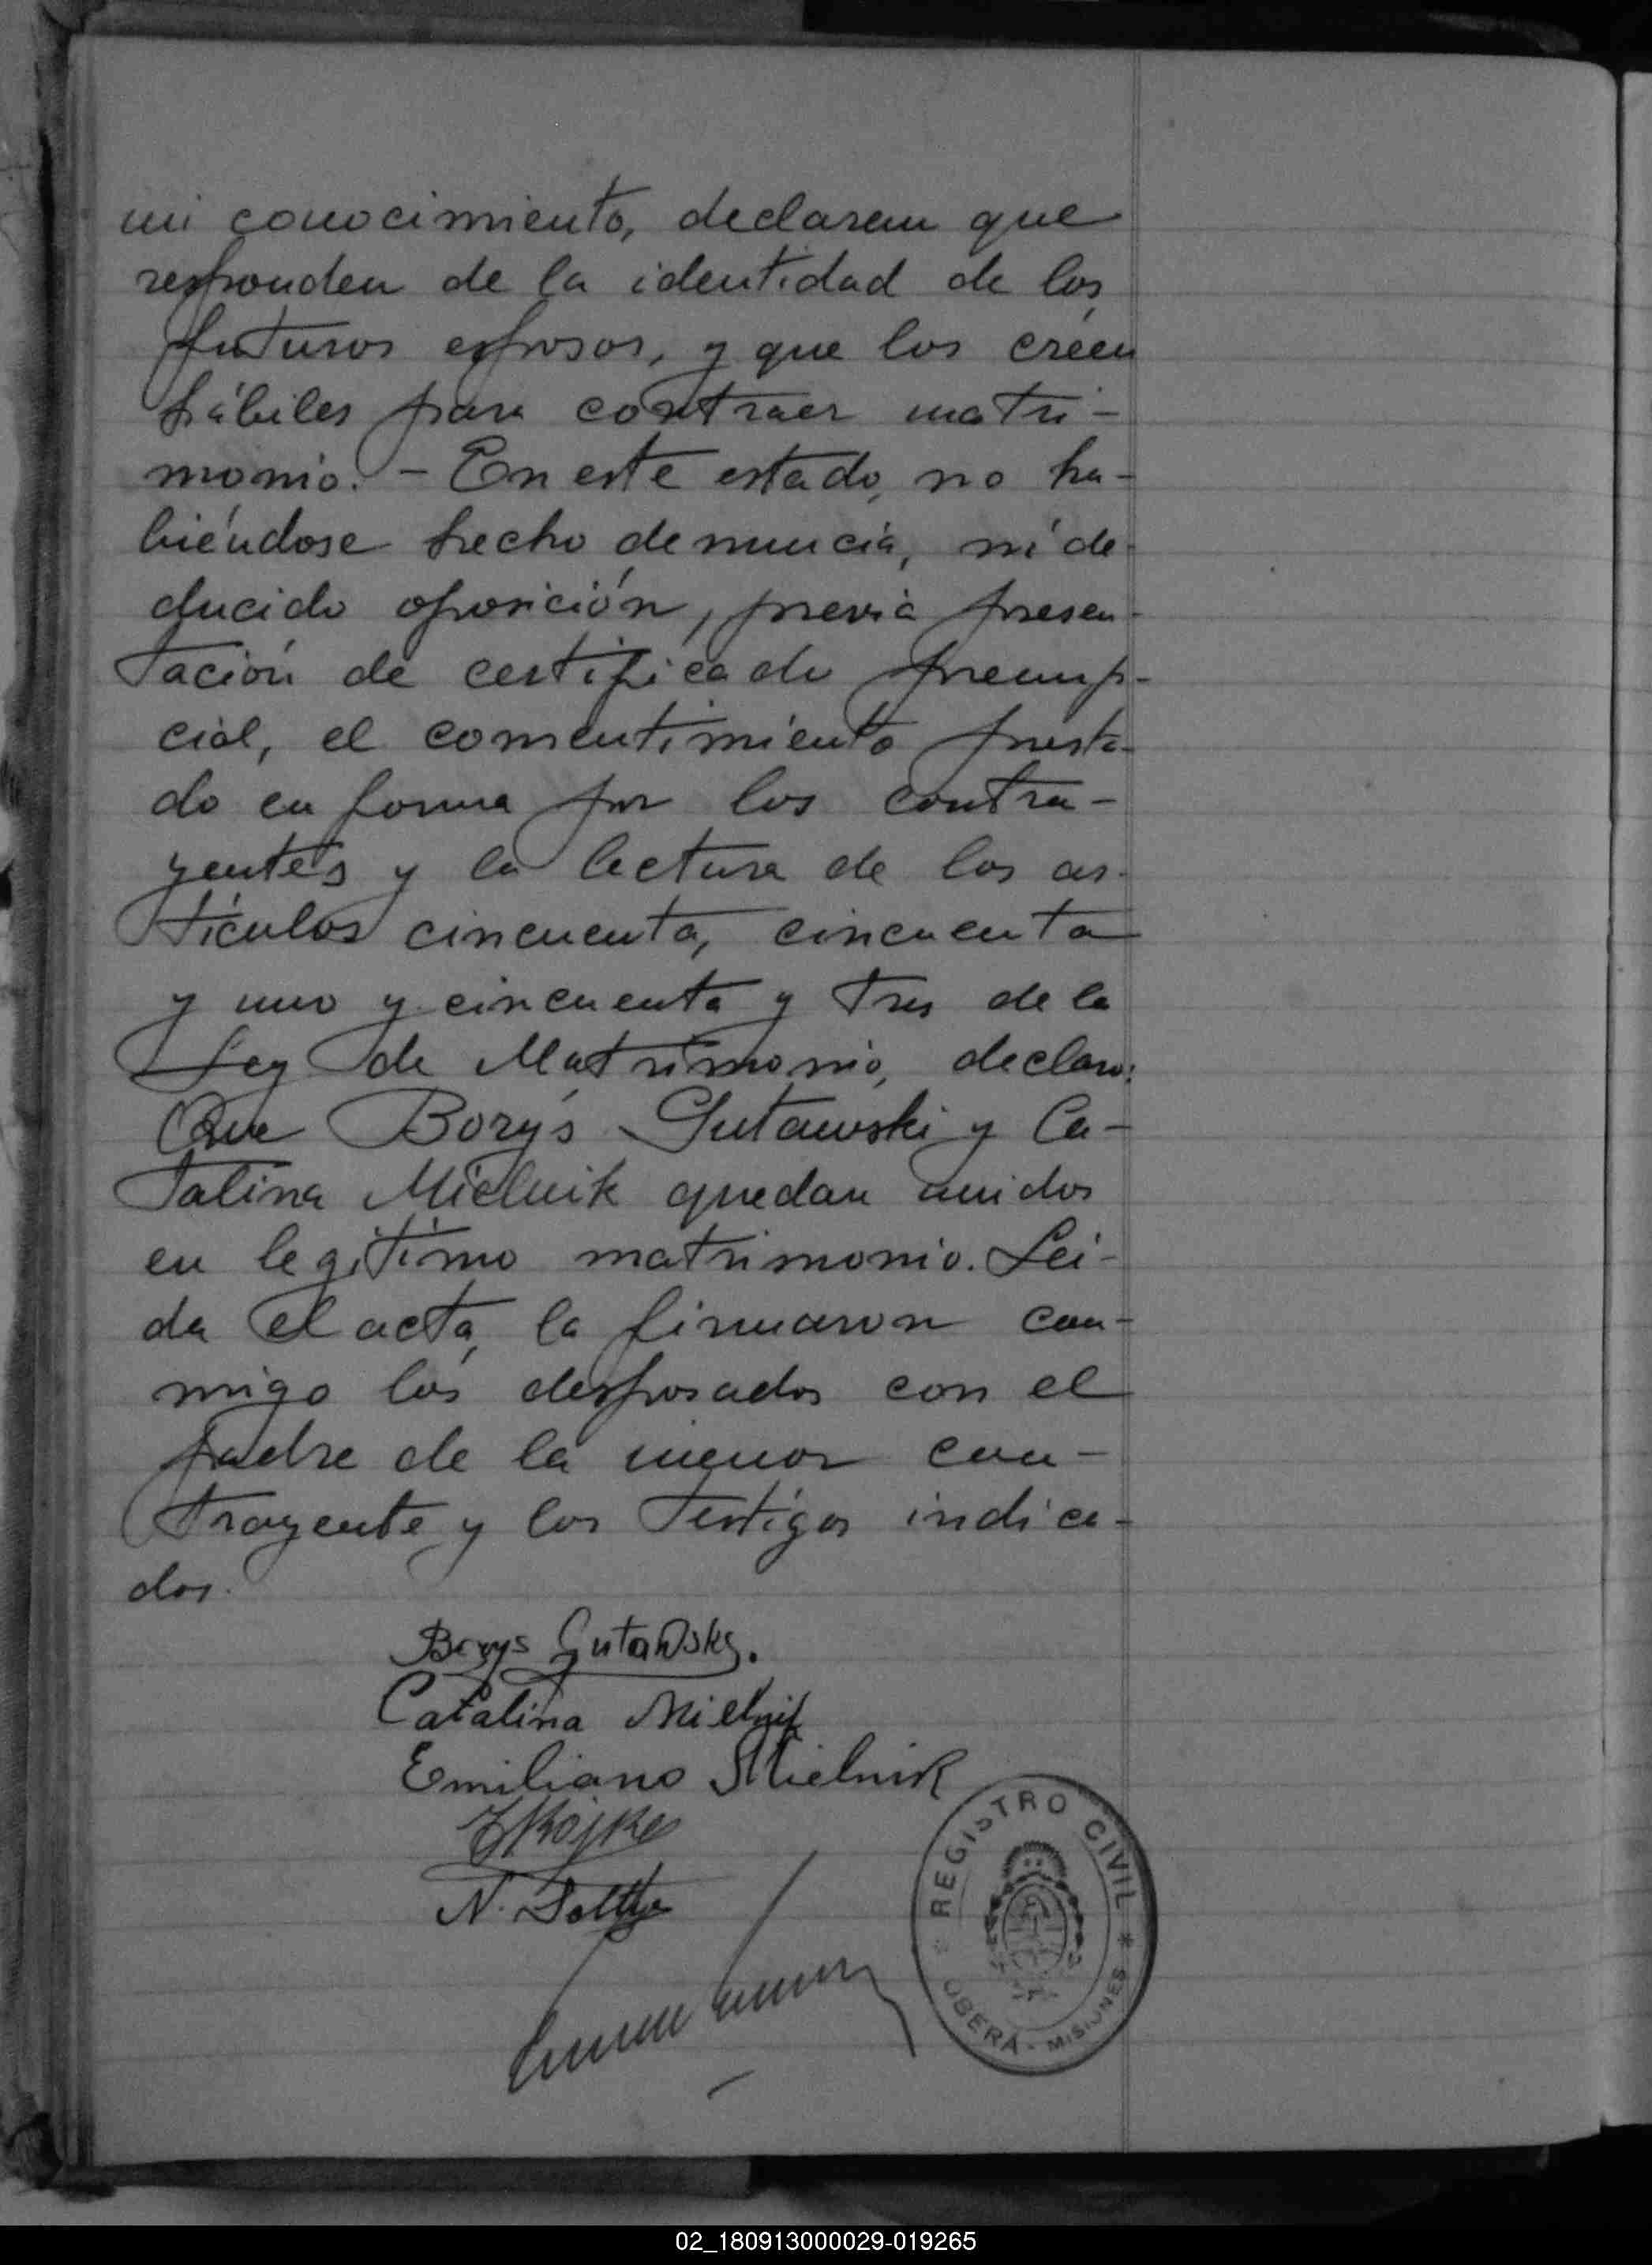 mi conocimiento, declaran que
responden de la identidad de los
futuros esposos, y que los créen
hábiles para contraer matri-
monio. - En este estado, no ha-
biéndose hecho denuncia, ni de-
ducido oposición, previa presen-
tación de certificado prenup-
cial, el consentimiento presta-
do en forma por los contra-
yentes y la lectura de los ar-
tículos cincuenta, cincuenta
y uno y cincuenta y tres de la
Ley de Matrimonio, declaro:
Que Borys Gutawski y Ca-
talina Mielnik quedan unidos
en legítimo matrimonio. Leí-
da el acta, la firmaron con-
migo los desposados con el
padre de la menor con-
trayente y los testigos indica-
dos.
Borys Gutawski.
Catalina Mielnik
Emiliano Mielnik
N.
REGISTRO CIVIL * OBERÁ - MISIONES *
02_180913000029-019265